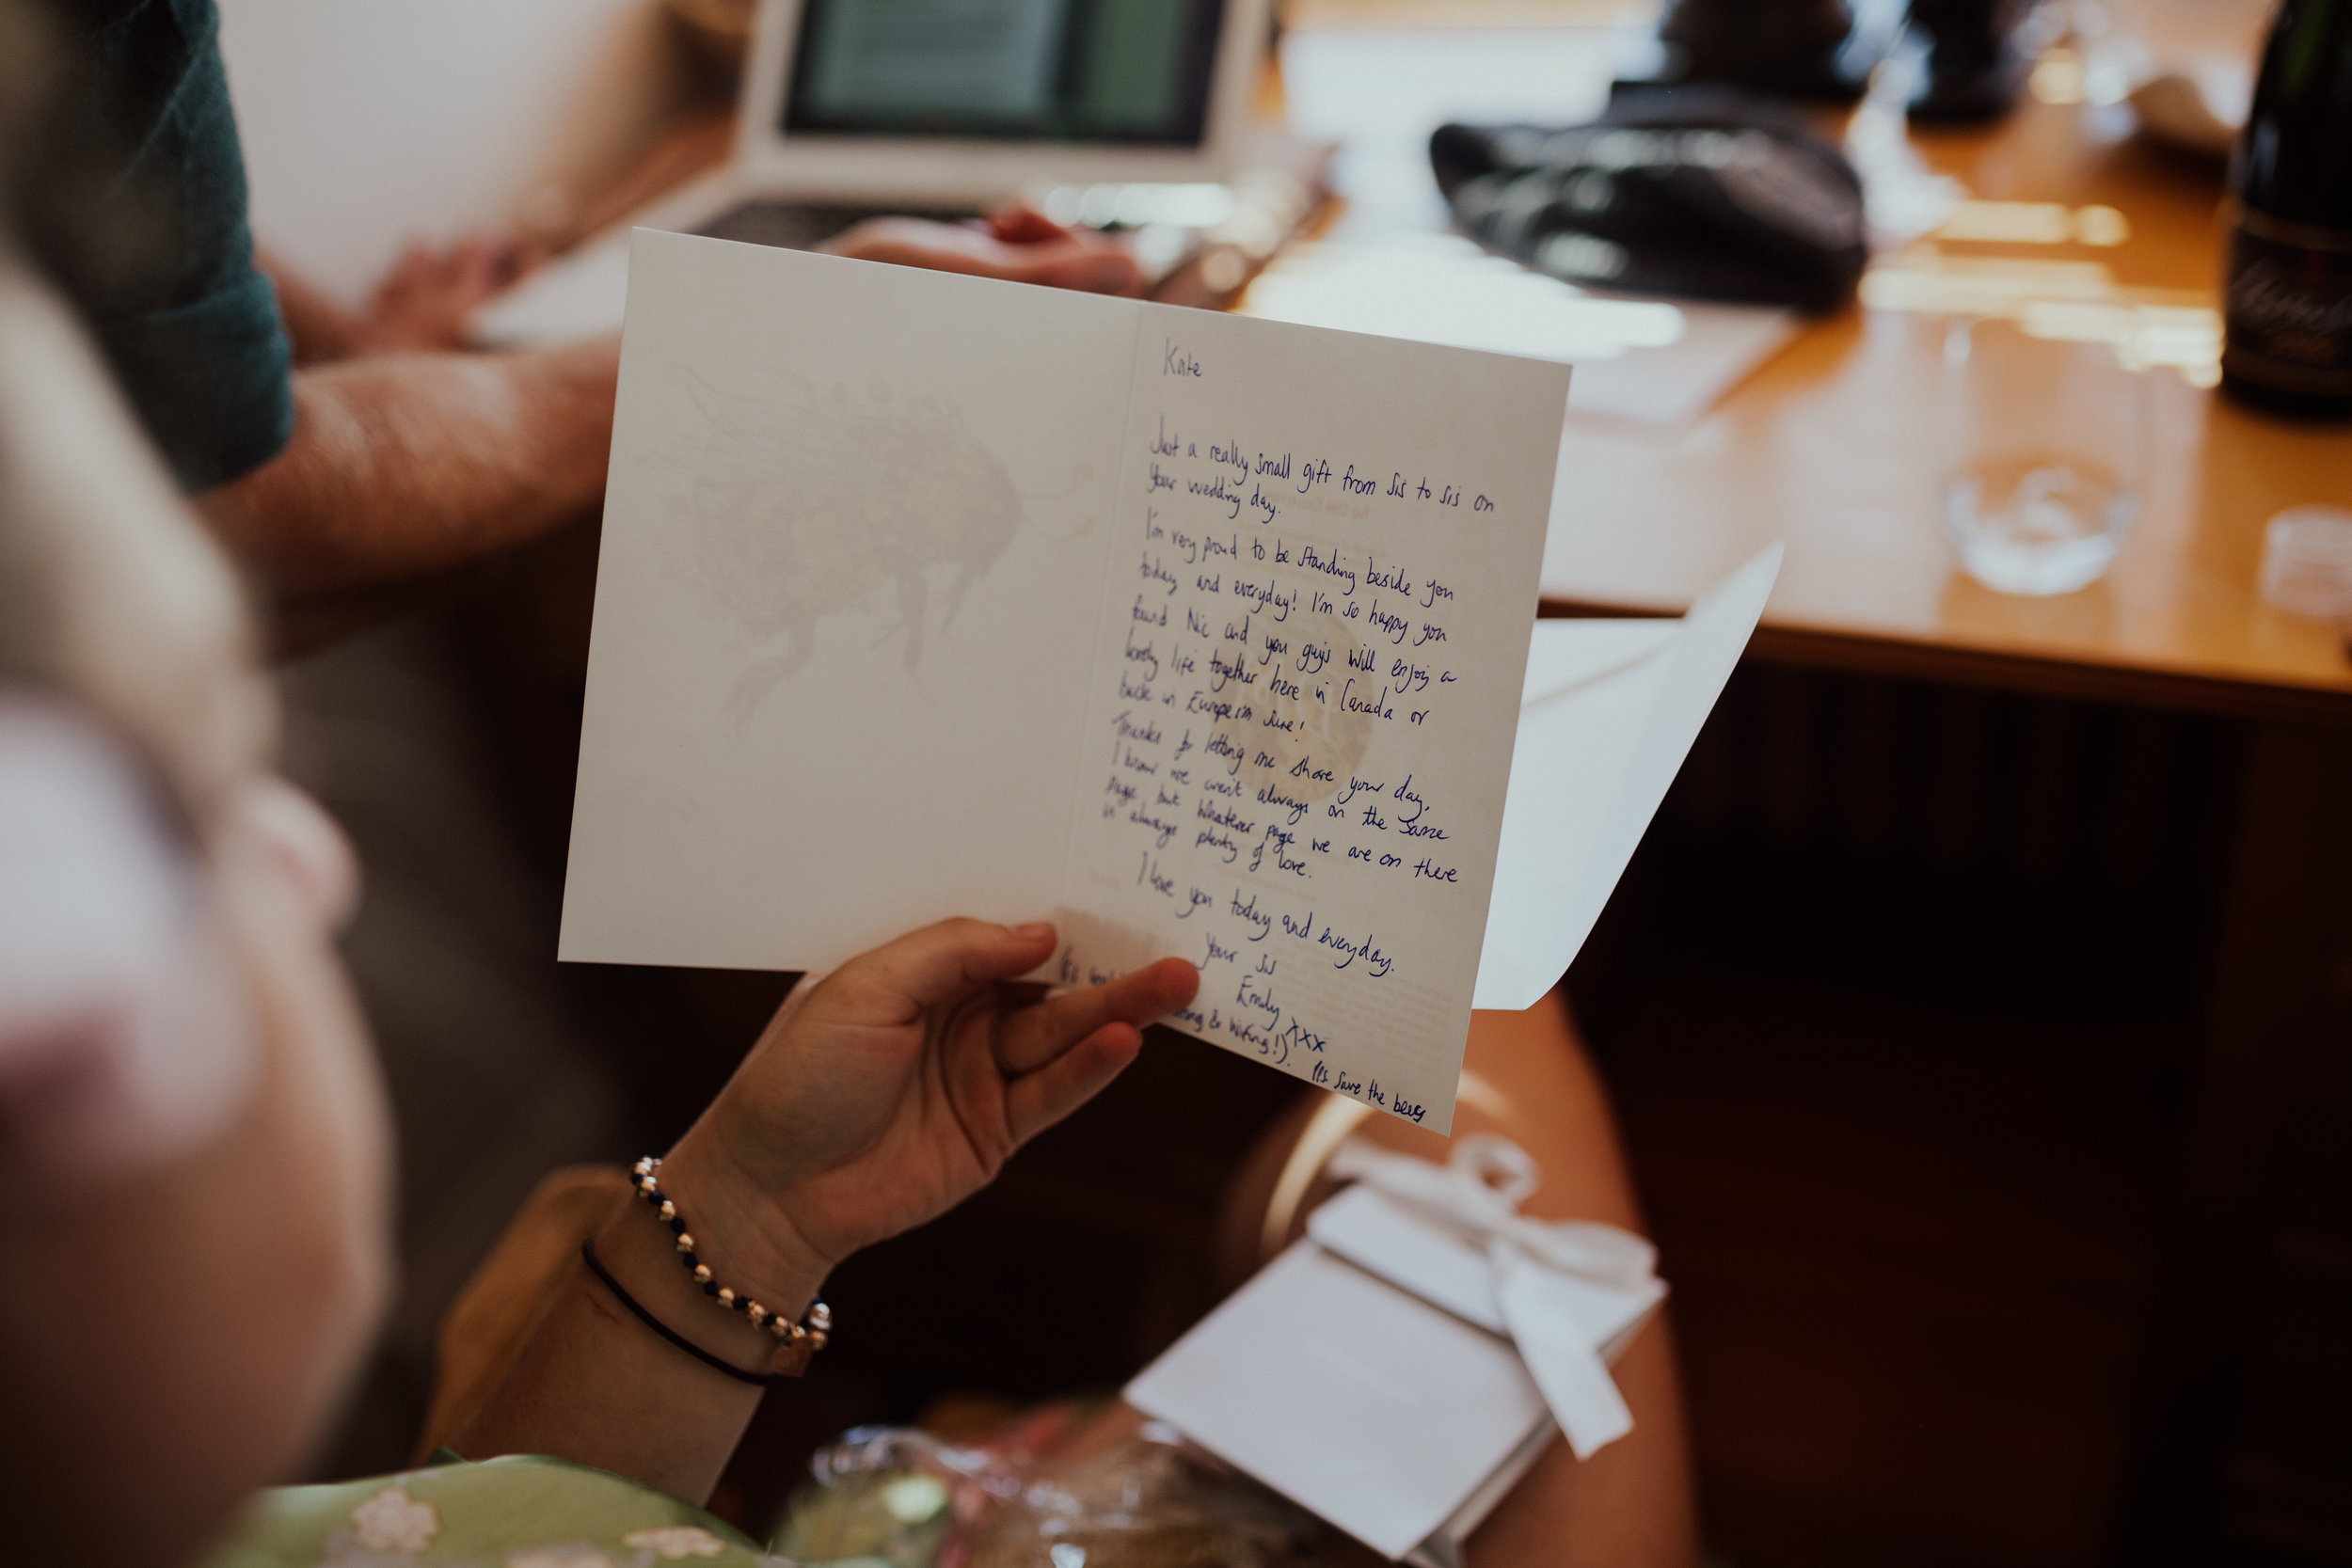 Kate
Just a really small gift from sis to sis on
your wedding day.
I'm very proud to be standing beside you
today and everyday! I'm so happy you
found Nic and you guys will enjoy a
lovely life together here in Canada or
back in Europe I'm sure!
Thanks for letting me share your day,
I know we aren't always on the same
page but whatever page we are on there
is always plenty of love.
I love you today and everyday.
Your sis
Emily xxx
& wifing!).
PPS Save the bees